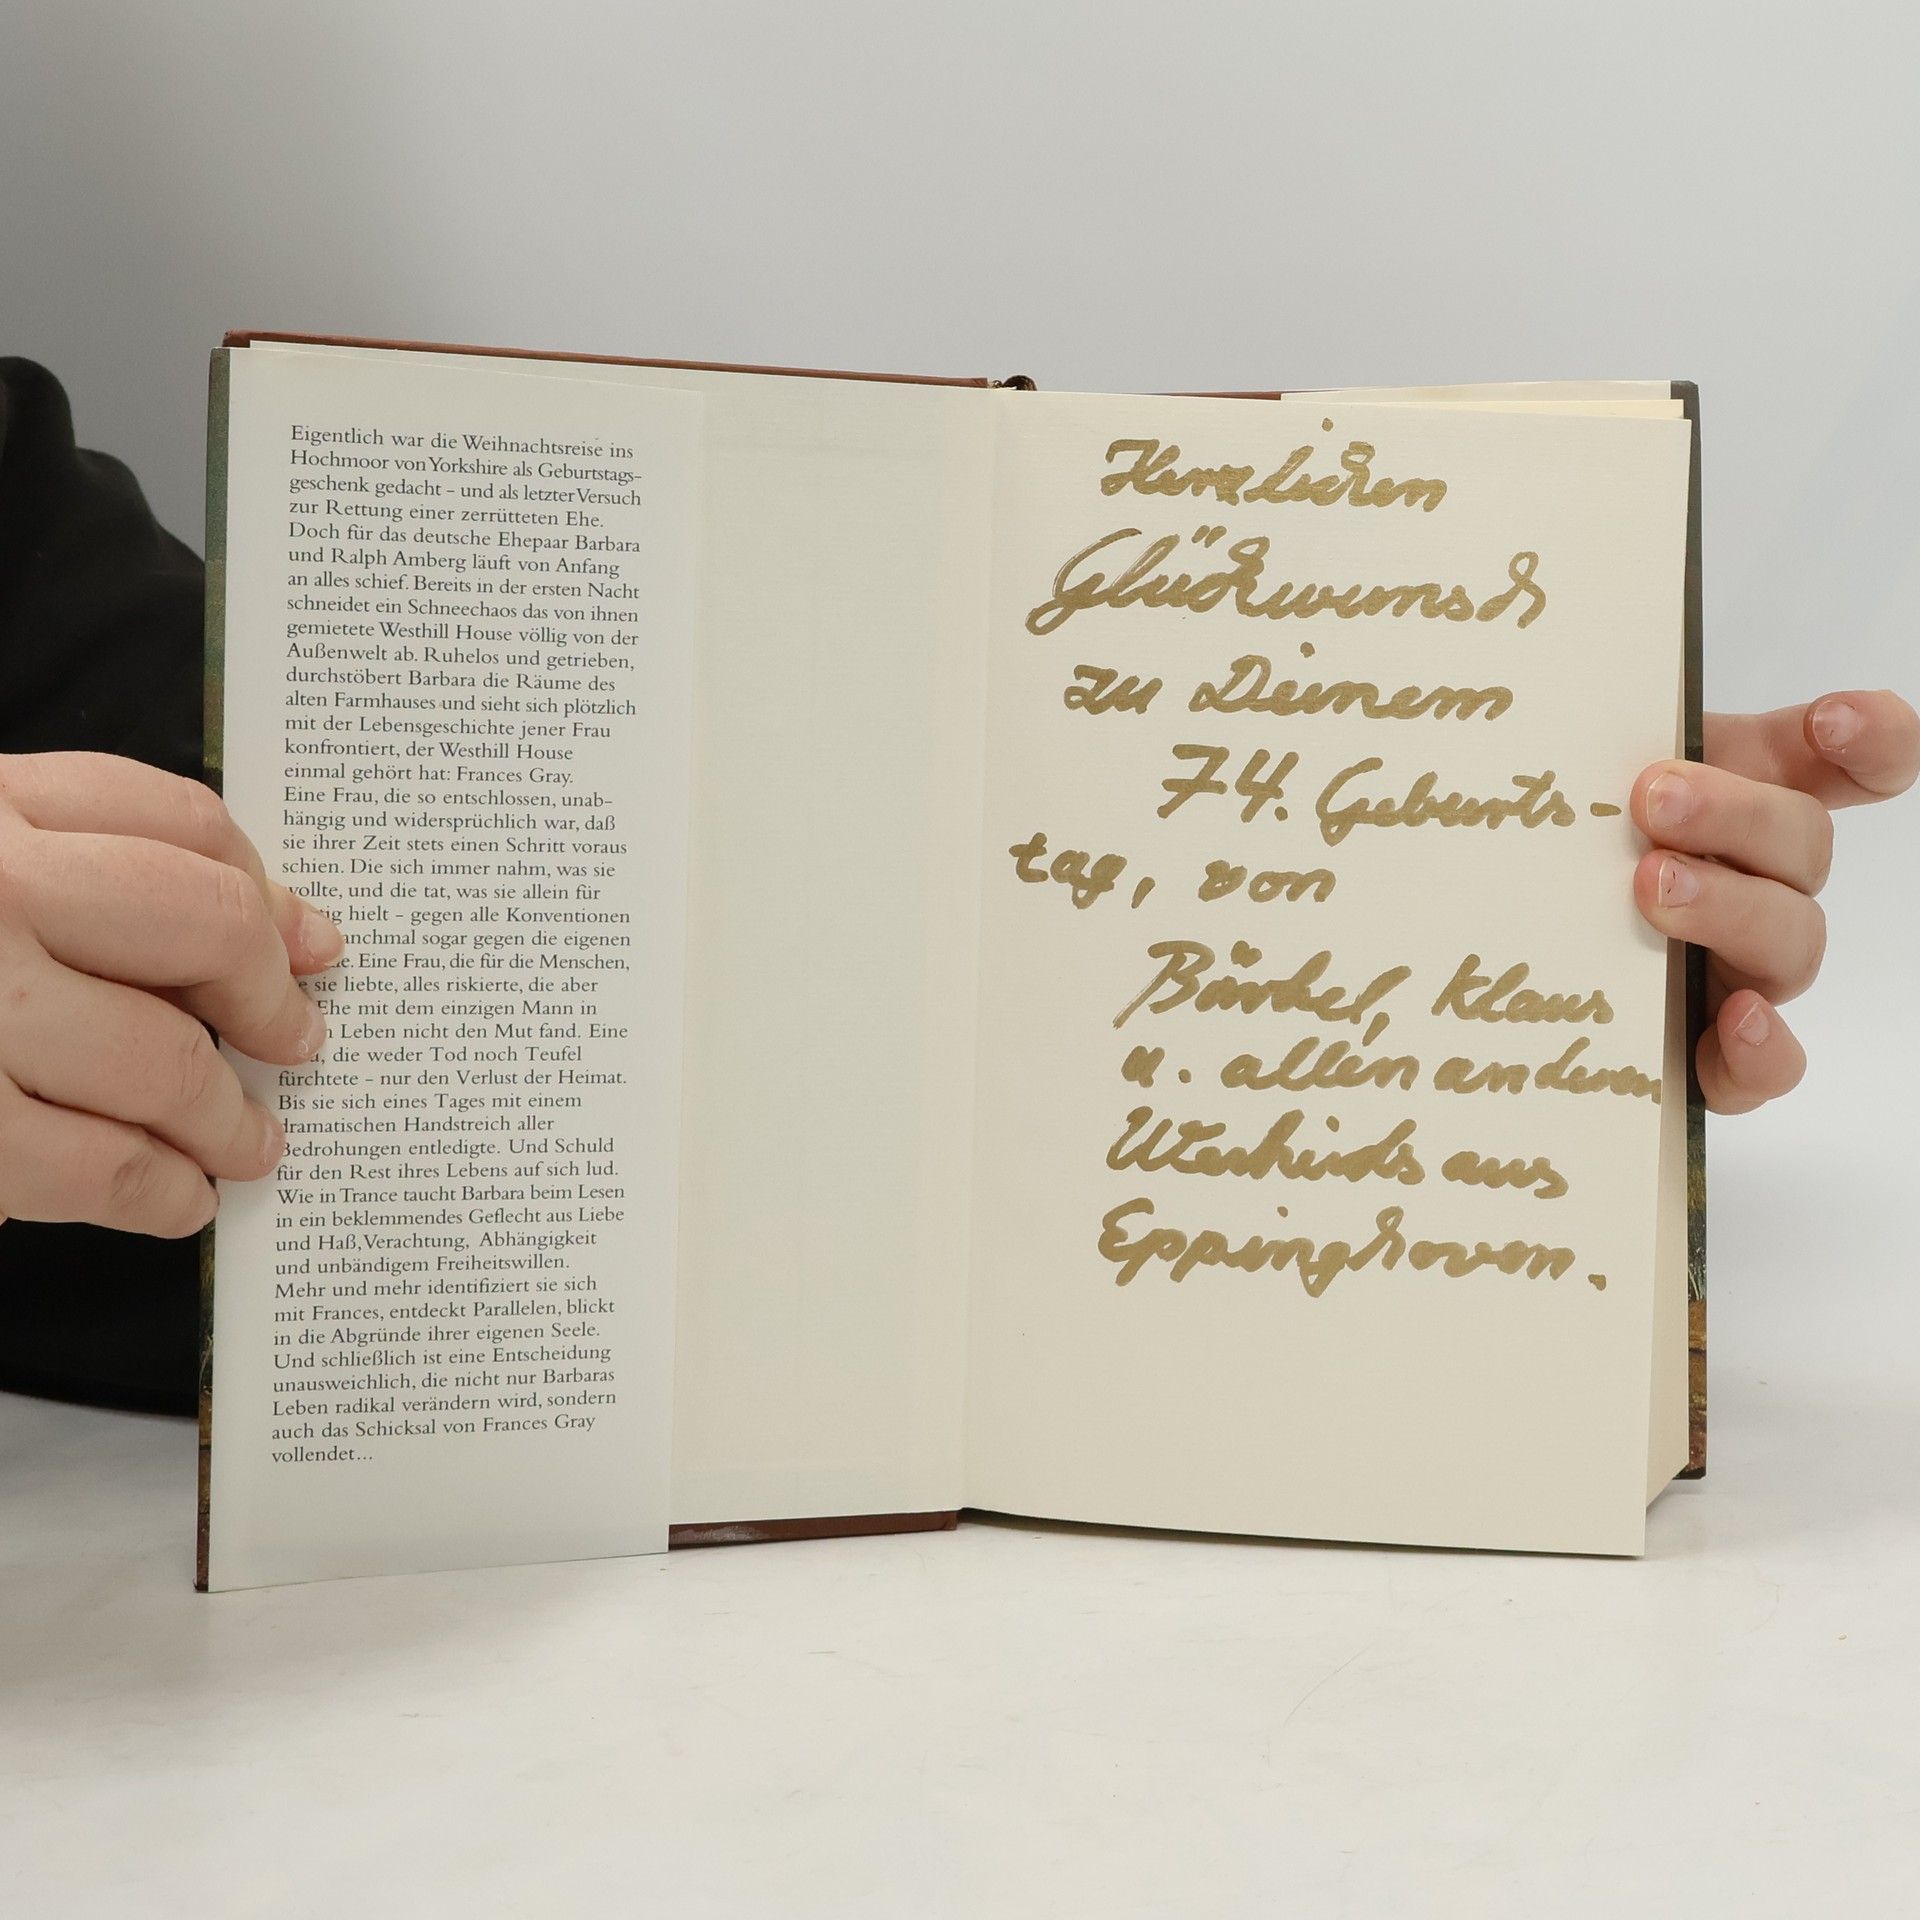 Eigentlich war die Weihnachtsreise ins
Hochmoor von Yorkshire als Geburtstags-
geschenk gedacht – und als letzter Versuch
zur Rettung einer zerrütteten Ehe.
Doch für das deutsche Ehepaar Barbara
und Ralph Amberg läuft von Anfang
an alles schief. Bereits in der ersten Nacht
schneidet ein Schneechaos das von ihnen
gemietete Westhill House völlig von der
Außenwelt ab. Ruhelos und getrieben,
durchstöbert Barbara die Räume des
alten Farmhauses und sieht sich plötzlich
mit der Lebensgeschichte jener Frau
konfrontiert, der Westhill House
einmal gehört hat: Frances Gray.
Eine Frau, die so entschlossen, unab-
hängig und widersprüchlich war, daß
sie ihrer Zeit stets einen Schritt voraus
schien. Die sich immer nahm, was sie
wollte, und die tat, was sie allein für
hielt – gegen alle Konventionen
manchmal sogar gegen die eigenen
Eine Frau, die für die Menschen,
sie liebte, alles riskierte, die aber
Ehe mit dem einzigen Mann in
Leben nicht den Mut fand. Eine
die weder Tod noch Teufel
fürchtete – nur den Verlust der Heimat.
Bis sie sich eines Tages mit einem
dramatischen Handstreich aller
Bedrohungen entledigte. Und Schuld
für den Rest ihres Lebens auf sich lud.
Wie in Trance taucht Barbara beim Lesen
in ein beklemmendes Geflecht aus Liebe
und Haß, Verachtung, Abhängigkeit
und unbändigem Freiheitswillen.
Mehr und mehr identifiziert sie sich
mit Frances, entdeckt Parallelen, blickt
in die Abgründe ihrer eigenen Seele.
Und schließlich ist eine Entscheidung
unausweichlich, die nicht nur Barbaras
Leben radikal verändern wird, sondern
auch das Schicksal von Frances Gray
vollendet...
Herzlichen
Glückwunsch
zu Deinem
74. Geburts-
tag, von
Bärbel, Klaus
u. allen anderen
aus
Eppinghoven.